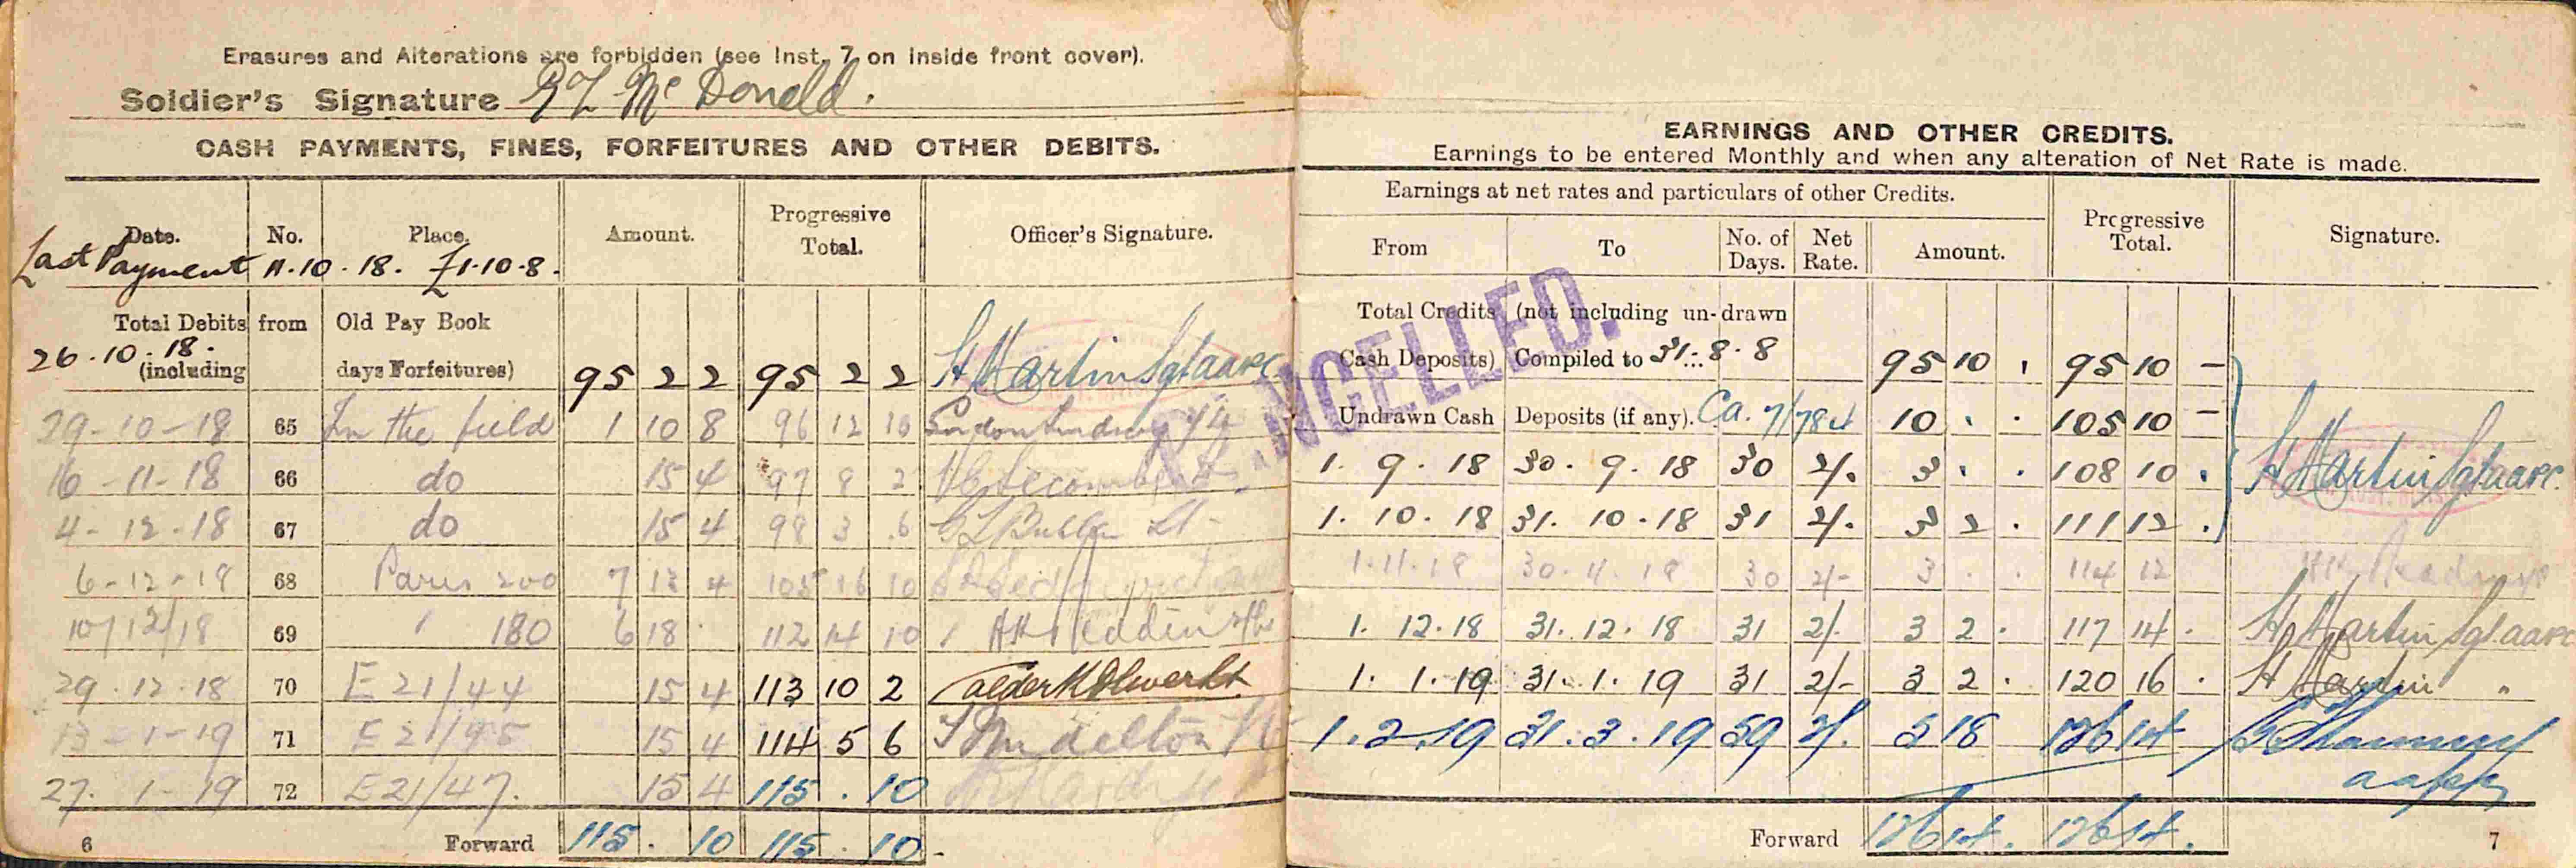 Erasures and Alterations are forbidden (see Inst. 7 on inside front cover).
Soldier's Signature McDonald.
CASH PAYMENTS, FINES, FORFEITURES AND OTHER DEBITS.
Date. No. Place. Amount. Progressive Total. Officer's Signature.
Last Payment 11.10.18. £1.10.8.
Total Debits from Old Pay Book
26.10.18. (including days Forfeitures) 95 2 2 95 2 2 H Martin Sgt aapc
29-10-18 65 In the field 1 10 8 96 12 10
16-11-18 66 do 15 4 97 8 2
4-12-18 67 do 15 4 98 3 6 Lt
6-12-18 68 Paris 200 7 13 4 105 16 10
10/12/18 69 " 180 6 18 . 112 14 10
29.12.18 70 E21/44 15 4 113 10 2
13-1-19 71 E21/45 15 4 114 5 6
27.1-19 72 E21/47. 15 4 115 . 10
6 Forward 115 . 10 115 . 10
EARNINGS AND OTHER CREDITS.
Earnings to be entered Monthly and when any alteration of Net Rate is made.
Earnings at net rates and particulars of other Credits. Progressive Total. Signature.
From To No. of Days. Net Rate. Amount.
CANCELLED.
Total Credits (not including un-drawn
Cash Deposits) Compiled to 31.8.8 95 10 . 95 10 -
Undrawn Cash Deposits (if any). Ca. 7/784 10 . . 105 10 -
1.9.18 30.9.18 30 2/. 3 . . 108 10 . H Martin Sgt aapc.
1.10.18 31.10.18 31 2/. 3 2 . 111 12 .
1.11.18 30.11.18 30 2/- 3 . . 114 12
1.12.18 31.12.18 31 2/. 3 2 . 117 14 . H Martin Sgt aapc
1.1.19 31.1.19 31 2/- 3 2 . 120 16 . H Martin "
1.2.19 31.3.19 59 2/. 5 18 126 14
aapc
Forward 126 14 . 126 14 .
7